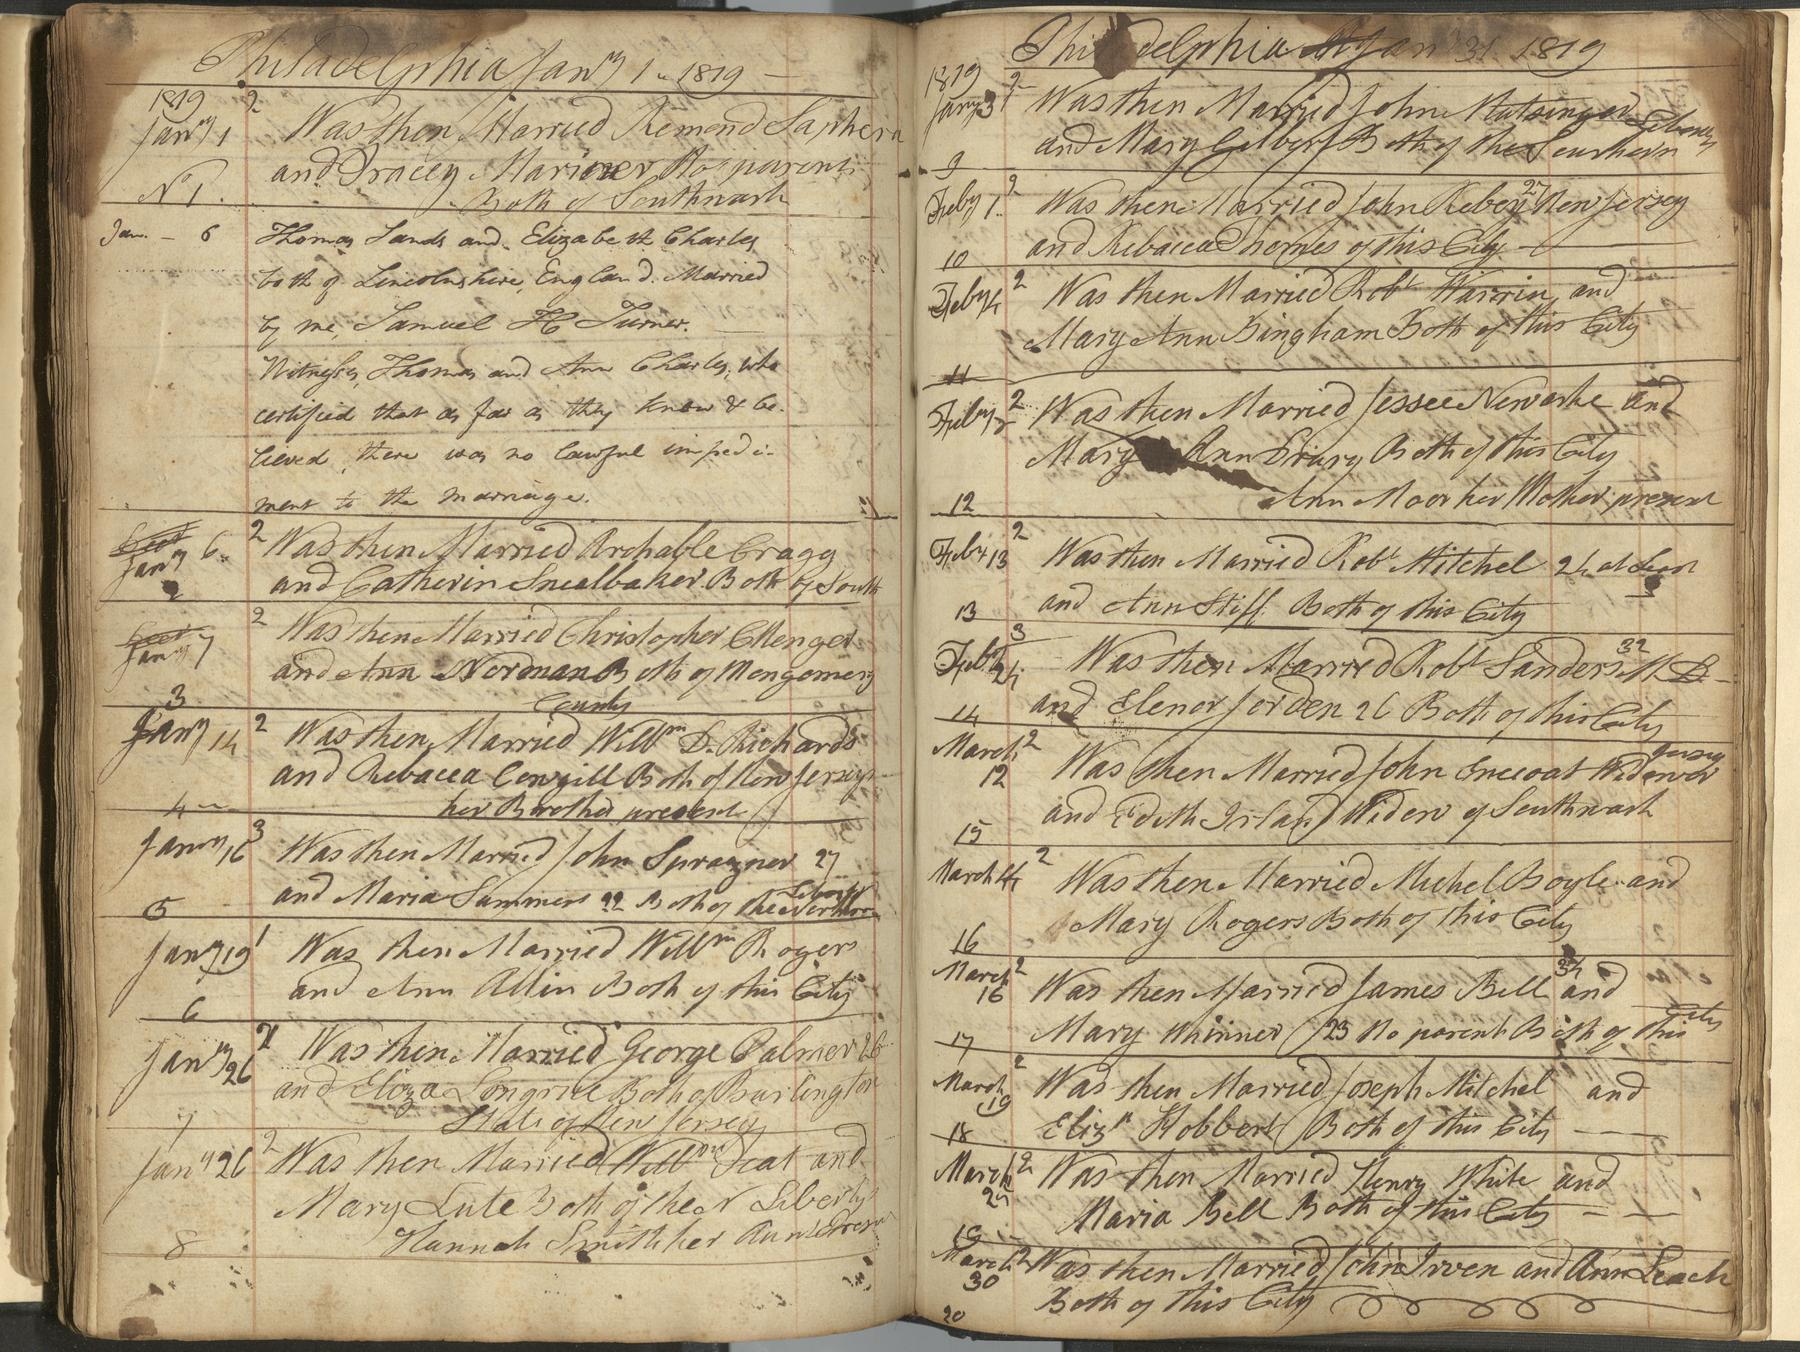 Philadelphia Jany 1 1819
1819
Jany 1
2
Was then Married Remond
and Mariner No parents
No 1.
Both of Southwark
Jan. - 6
Thomas Sands and Elizabeth Charles
both of Lincolnshire, England. Married
by me, Samuel H Turner.
Witnesses, Thomas and Ann Charles, who
certified that as far as they know & be-
lieved, there was no lawful impedi-
ment to the marriage.
Jany 6
2
Was then Married Archable Cragg
2
and Catherin Snealbaker Both of South
Jany 7
2
Was then Married Christopher
and Ann Nordman Both of Mongomery
3
County
Jany 14
2
Was then Married Willm D. Richards
and Rebacca Cowgill Both of New Jersey
4
her Brother present
Jany 16
3
Was then Married John Sprayner 27
and Maria Summers 22 Both of the Northern
5
Jany 19
1
Was then Married Willm Rogers
and Ann Allin Both of this City
6
Jany 26
2
Was then Married George Palmer 26
and Eliza Longrice Both of Burlington
7
State of New Jersey
Jany 26
2
Was then Married Willm Peat and
Mary Lute Both of the N Liberty
8
Hannah Smith her Aunt Presen
Philadelphia Jan 31 1819
1819
Jany 31
2
Was then Married John
and Mary Gilbert Both of the Southern
9
Feby 1
2
27
Was then Married John New Jersey
and Rebacca Thomes of this City
10
Feby 4
2
Was then Married Robt Warrin and
Mary Ann Bingham Both of this City
11
Feby
2
Was then Married Jessee Newarke and
Mary Ann Drury Both of this City
12
Ann Moor her Mother present
Feby 13
2
Was then Married Robt Mitchel 24 at Least
13
and Ann Stiff Both of this City
Feby 24
3
32
Was then Married Robt Sanders M D
and Elenor Jorden 26 Both of this City
14
March 12
2
Jersey
Was then Married John Widower
and Edith Irland Widow of Southwark
15
March 14
2
Was then Married Michel Boyle and
Mary Rogers Both of this City
16
March 16
2
34
Was then Married James Bell and
City
Mary Whinner 23 No parent Both of this
17
March 19
2
Was then Married Joseph Mitchel and
Elizh Hobbert Both of this City
18
March
2
Was then Married Henry White and
Maria Bell Both of this City
19
March 30
2
Was then Married John Irven and Ann Leach
Both of this City
20